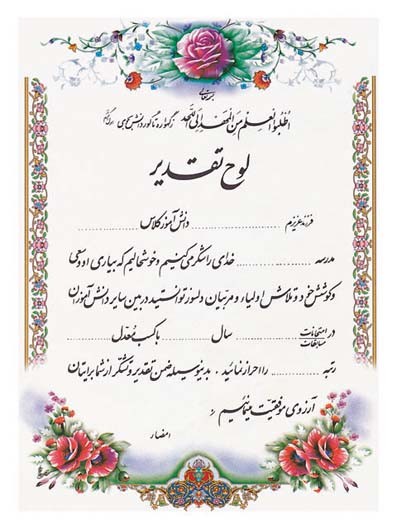 بسمه تعالی
اطلبوا العلم من المهد الی اللحد ز گهواره تا گور دانش بجوی
لوح تقدیر
فرزند عزیزم .............................. دانش آموز کلاس ....................
مدرسه .................... خدای را شکر می کنیم و خوشحالیم که بیاری او و سعی
و کوشش خود و تلاش اولیاء و مربیان دلسوز توانستید در بین سایر دانش آموزان
در امتحانات مسابقات .................... سال .................... با کسب معدل ....................
رتبه ............ را احراز نمائید . بدینوسیله ضمن تقدیر و تشکر از شما برایتان
آرزوی موفقیت مینمائیم
امضاء